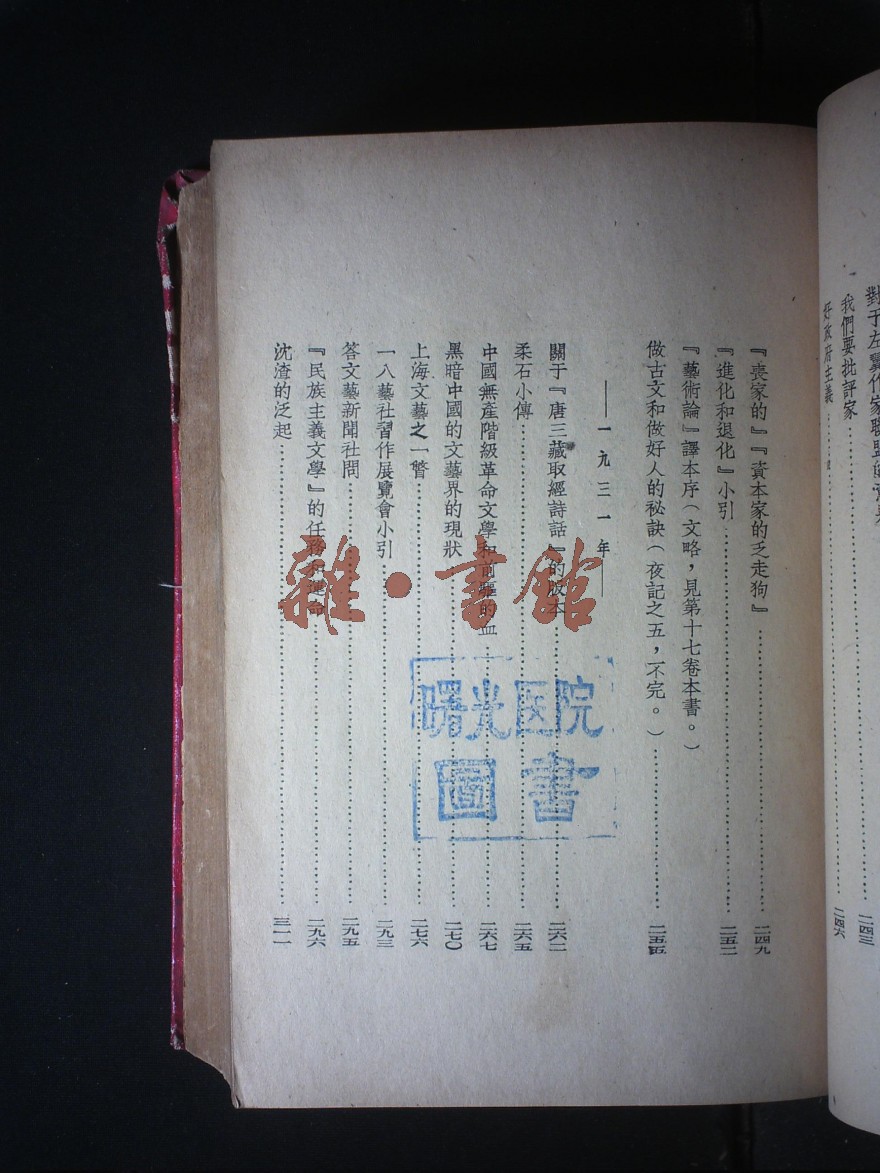 對于左翼作家聯盟的意見
我們要批評家……二四三
好政府主義……二四六
『喪家的』『資本家的乏走狗』……二四九
『進化和退化』小引……二五二
『藝術論』譯本序(文略，見第十七卷本書。)
做古文和做好人的秘訣(夜記之五，不完。)……二五五
——一九三一年——
關于『唐三藏取經詩話』的版本……二六二
柔石小傳……二六五
中國無產階級革命文學和前驅的血……二六七
黑暗中國的文藝界的現狀……二七〇
上海文藝之一瞥……二七六
一八藝社習作展覽會小引……二九三
答文藝新聞社問……二九五
『民族主義文學』的任務和運命……二九六
沈渣的泛起……三一一
雜·書館
曙光医院
圖書